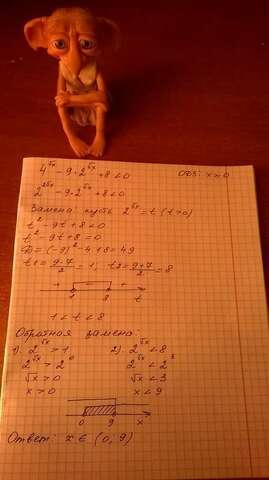 4^√x - 9·2^√x + 8 < 0 ОДЗ: x ≥ 0
2^2√x - 9·2^√x + 8 < 0
Замена: пусть 2^√x = t (t > 0)
t² - 9t + 8 < 0
t² - 9t + 8 = 0
D = (-9)² - 4·1·8 = 49
t1 = (9-7)/2 = 1; t2 = (9+7)/2 = 8
+ - +
1 8 t
1 < t < 8
Обратная замена:
1). 2^√x > 1 2). 2^√x < 8
2^√x > 2^0 2^√x < 2^3
√x > 0 √x < 3
x > 0 x < 9
0 9 x
Ответ: x ∈ (0, 9)